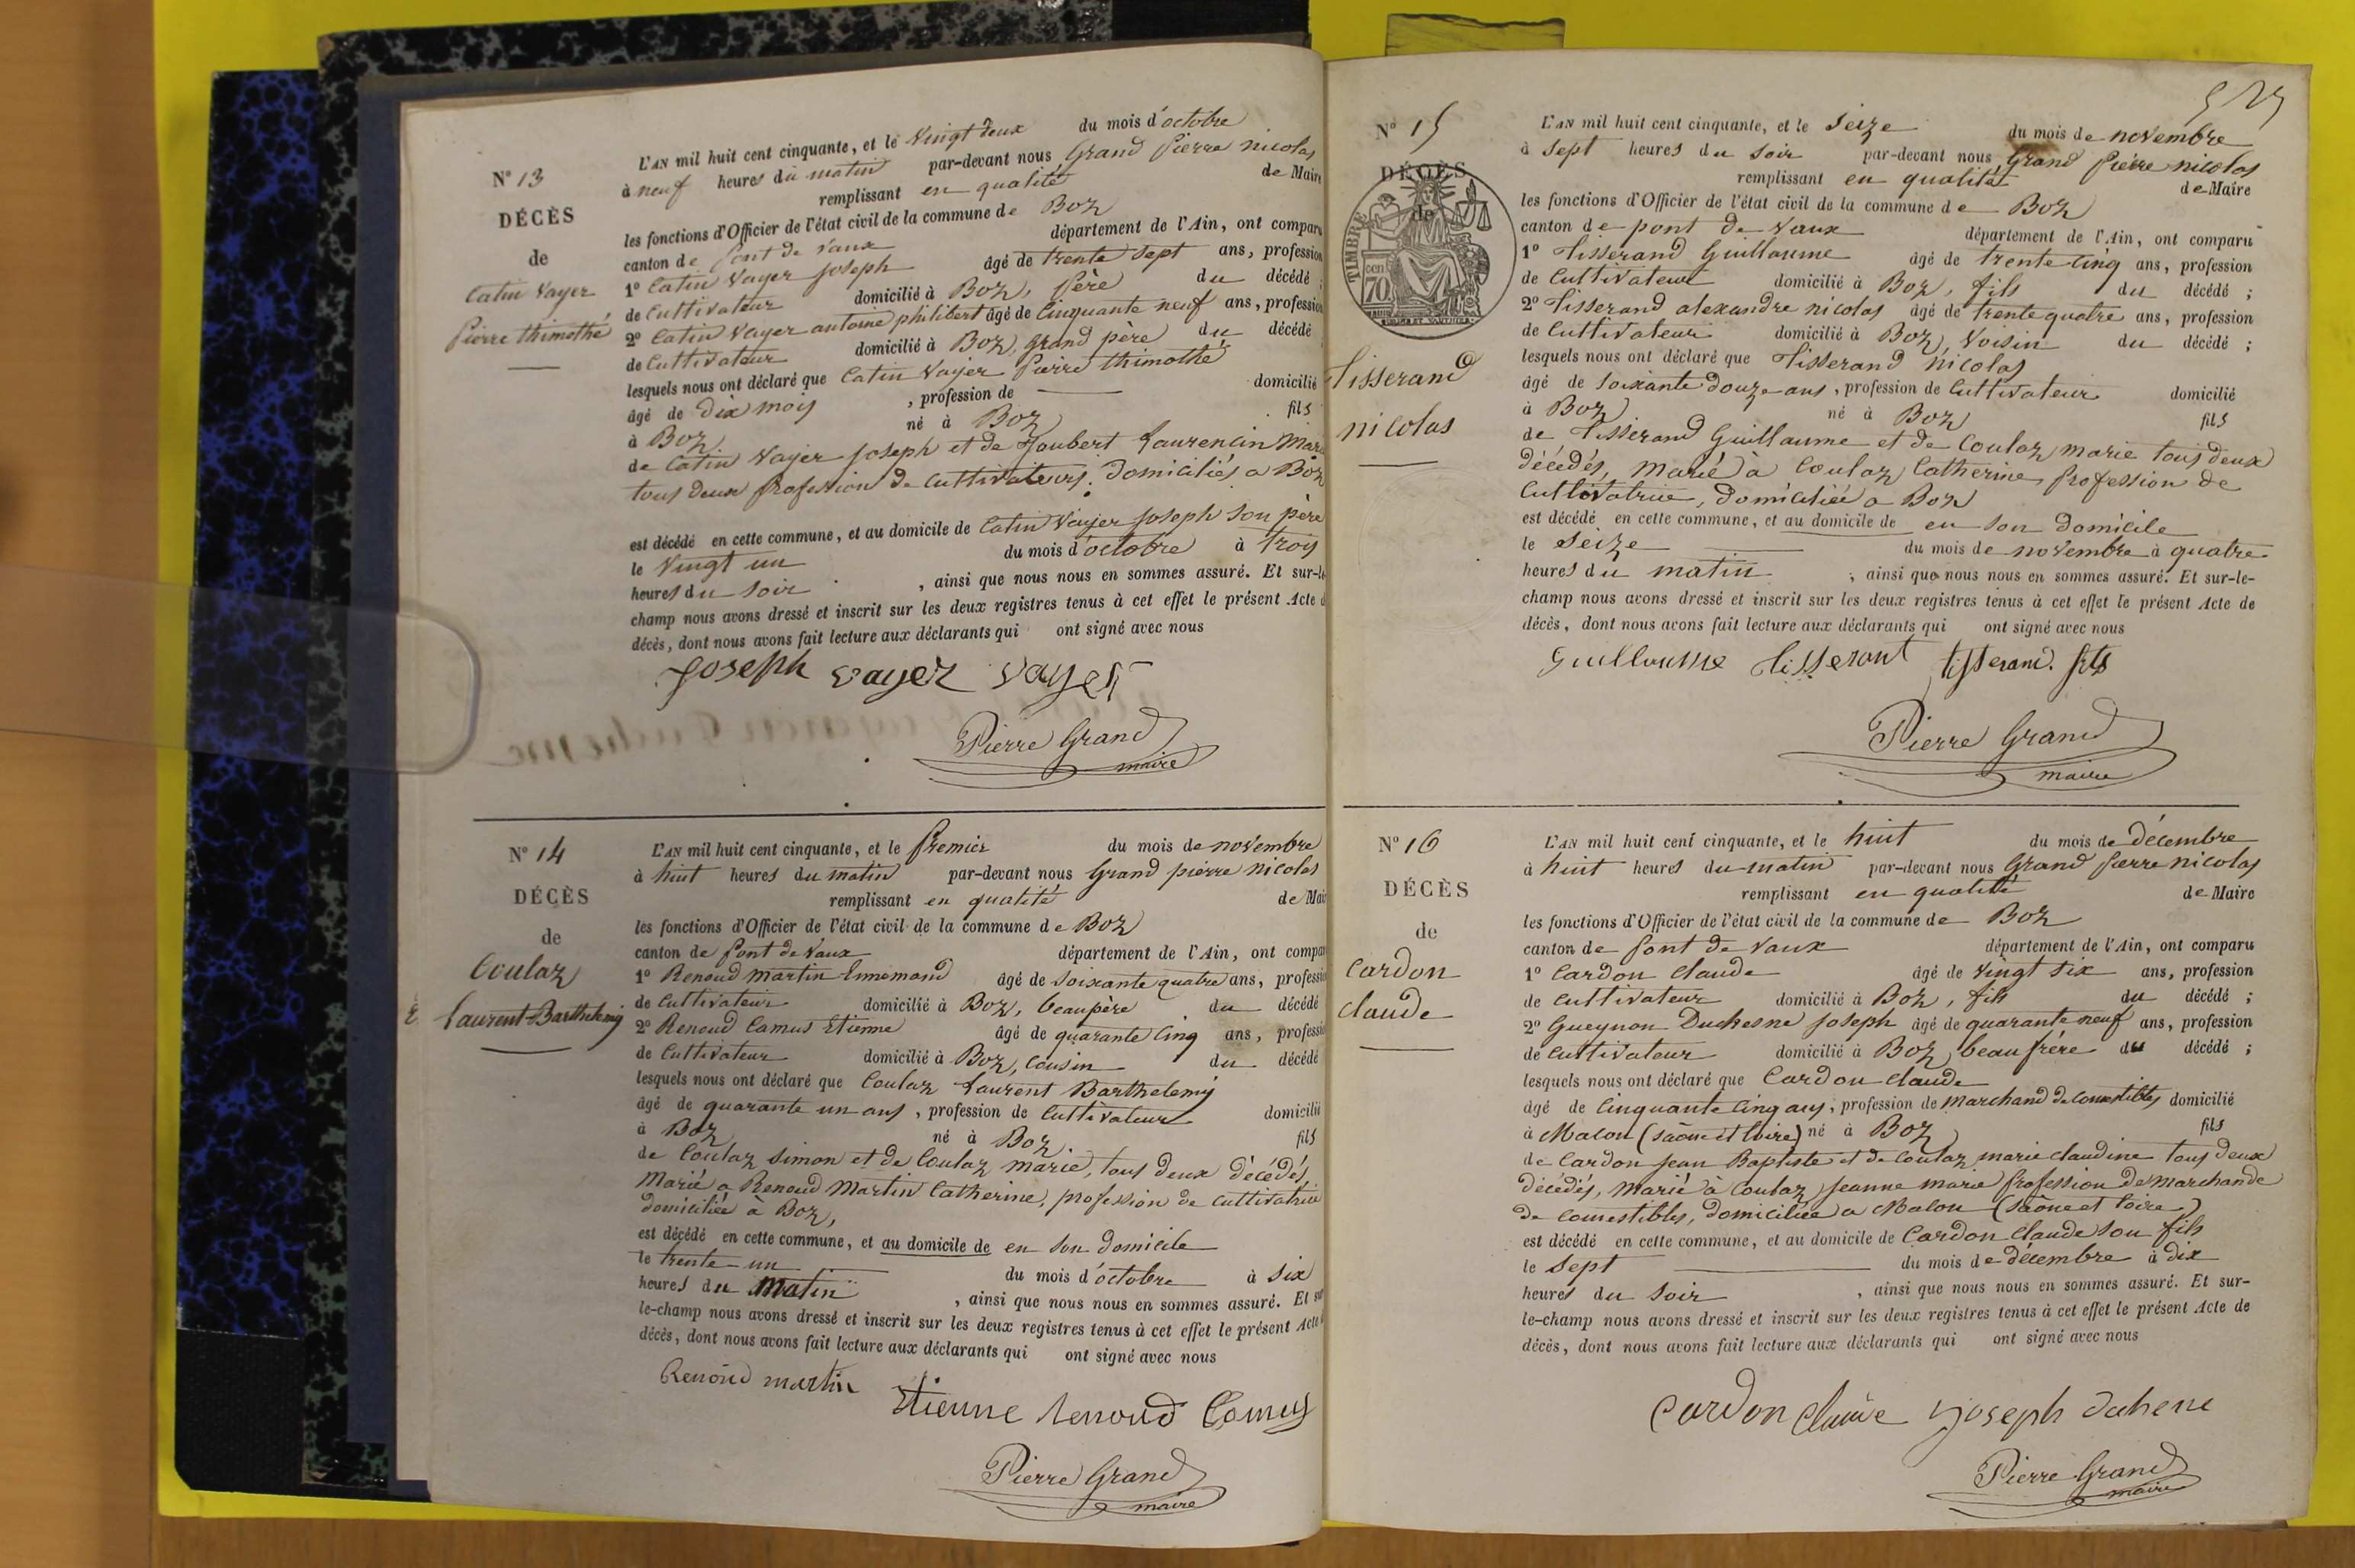 N° 13
DÉCÈS
de
Catin Vayer
Pierre thimothé
L'AN mil huit cent cinquante, et le Vingt deux du mois d'octobre
à neuf heures du matin par-devant nous Grand Pierre nicolas
remplissant en qualité de Maire
les fonctions d'Officier de l'état civil de la commune de Boz
canton de Pont de Vaux département de l'Ain, ont comparu
1° Catin Vayer Joseph âgé de trente sept ans, profession
de Cultivateur domicilié à Boz, Père du décédé ;
2° Catin Vayer antoine philibert âgé de Cinquante neuf ans, profession
de Cultivateur domicilié à Boz, grand père du décédé
lesquels nous ont déclaré que Catin Vayer Pierre thimothé
âgé de dix mois , profession de domicilié
à Boz né à Boz fils
de Catin Vayer Joseph et de Joubert Laurencin
tous deux Profession de Cultivateurs, Domiciliés a Boz
est décédé en cette commune, et au domicile de Catin Vayer Joseph Son père
le Vingt un du mois d'octobre à trois
heures du Soir , ainsi que nous nous en sommes assuré. Et sur-le
champ nous avons dressé et inscrit sur les deux registres tenus à cet effet le présent Acte d
décès, dont nous avons fait lecture aux déclarants qui ont signé avec nous
Joseph vayer vayer
Pierre Grand
maire
N° 14
DÉCÈS
de
Coulaz
Laurent-Barthelemy
L'AN mil huit cent cinquante, et le Premier du mois de novembre
à huit heures du matin par-devant nous Grand pierre nicolas
remplissant en qualité de Mai
les fonctions d'Officier de l'état civil de la commune de Boz
canton de Pont de Vaux département de l'Ain, ont compar
1° Renoud martin Ennemond âgé de Soixante quatre ans, professi
de Cultivateur domicilié à Boz, beaupère du décédé
2° Renoud Camus Etienne âgé de quarante Cinq ans, professi
de Cultivateur domicilié à Boz, Cousin du décédé
lesquels nous ont déclaré que Coulaz Laurent Barthelemy
âgé de quarante un ans , profession de Cultivateur domicilié
à Boz né à Boz fils
de Coulaz Simon et de Coulaz marie, tous deux décédés,
Marié a Renoud Martin Catherine, profession de Cultivatrice
domiciliée à Boz,
est décédé en cette commune, et au domicile de en Son domicile
le trente un du mois d'octobre à Six
heures du matin , ainsi que nous nous en sommes assuré. Et sur
le-champ nous avons dressé et inscrit sur les deux registres tenus à cet effet le présent Acte
décès, dont nous avons fait lecture aux déclarants qui ont signé avec nous
Renoud martin Etienne renoud Camus
Pierre Grand
maire
N° 15
DÉCÈS
de
TIMBRE
70
Tisserand
nicolas
L'AN mil huit cent cinquante, et le Seize du mois de novembre
à Sept heures du Soir par-devant nous Grand Pierre nicolas
remplissant en qualité de Maire
les fonctions d'Officier de l'état civil de la commune de Boz
canton de pont de Vaux département de l'Ain, ont comparu
1° Tisserand Guillaume âgé de trente Cinq ans, profession
de Cultivateur domicilié à Boz, fils du décédé ;
2° Tisserand alexandre nicolas âgé de trente quatre ans, profession
de Cultivateur domicilié à Boz, Voisin du décédé ;
lesquels nous ont déclaré que Tisserand nicolas
âgé de Soixante douze ans, profession de Cultivateur domicilié
à Boz né à Boz fils
de Tisserand Guillaume et de Coulaz marie tous deux
décédés, Marié à Coulaz Catherine Profession de
Cultivatrice, Domiciliée a Boz
est décédé en cette commune, et au domicile de en Son domicile
le Seize du mois de novembre à quatre
heures du matin , ainsi que nous nous en sommes assuré. Et sur-le-
champ nous avons dressé et inscrit sur les deux registres tenus à cet effet le présent Acte de
décès, dont nous avons fait lecture aux déclarants qui ont signé avec nous
Guillaume tisserant tisserand. fils
Pierre Grand
maire
N° 16
DÉCÈS
de
Cardon
Claude
L'AN mil huit cent cinquante, et le huit du mois de décembre
à huit heures du matin par-devant nous Grand Pierre nicolas
remplissant en qualité de Maire
les fonctions d'Officier de l'état civil de la commune de Boz
canton de Pont de Vaux département de l'Ain, ont comparu
1° Cardon Claude âgé de Vingt Six ans, profession
de Cultivateur domicilié à Boz, fils du décédé ;
2° Gueynon Duchesne Joseph âgé de quarante neuf ans, profession
de Cultivateur domicilié à Boz, beaufrère du décédé ;
lesquels nous ont déclaré que Cardon Claude
âgé de Cinquante Cinq ans, profession de Marchand de Comestibles domicilié
à Macon (Saône et Loire) né à Boz fils
de Cardon Jean Baptiste et de Coulaz marie Claudine tous deux
décédés, Marié à Coulaz Jeanne marie Profession de Marchande
de Comestibles, Domiciliée a Macon (Saône et Loire)
est décédé en cette commune, et au domicile de Cardon Claude Son fils
le Sept du mois de décembre à dix
heures du Soir , ainsi que nous nous en sommes assuré. Et sur-
le-champ nous avons dressé et inscrit sur les deux registres tenus à cet effet le présent Acte de
décès, dont nous avons fait lecture aux déclarants qui ont signé avec nous
Cardon Claude Joseph duhene
Pierre Grand
maire